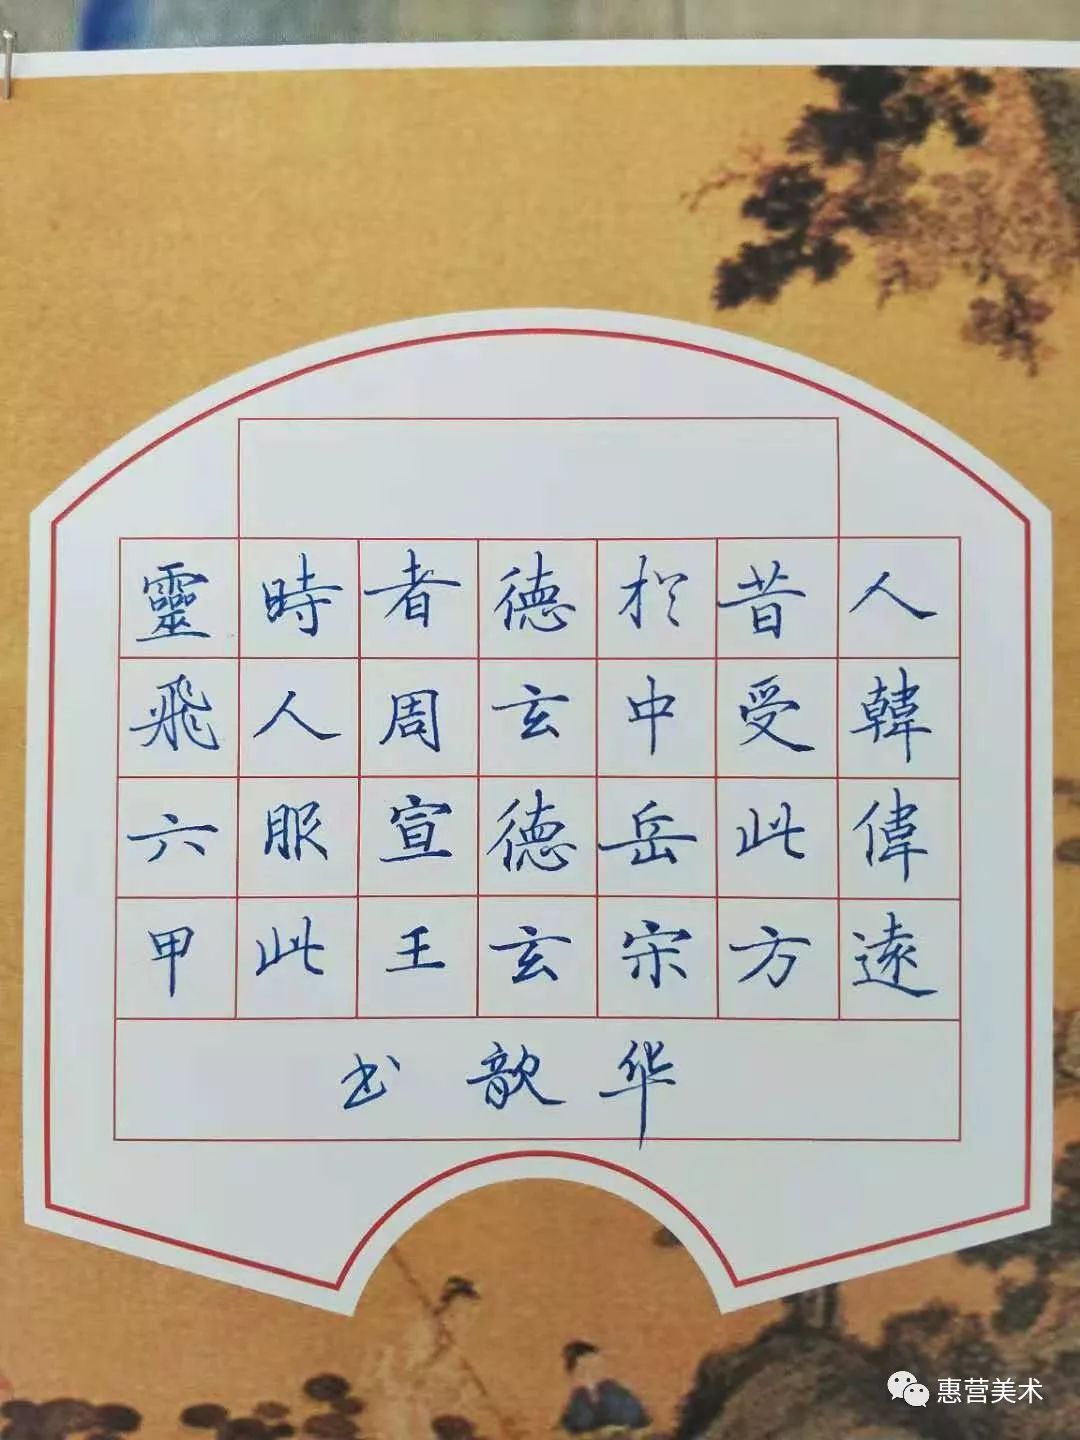 人韓偉遠
昔受此方
於中岳宋
德玄德玄
者周宣王
時人服此
靈飛六甲
华歆书
惠营美术